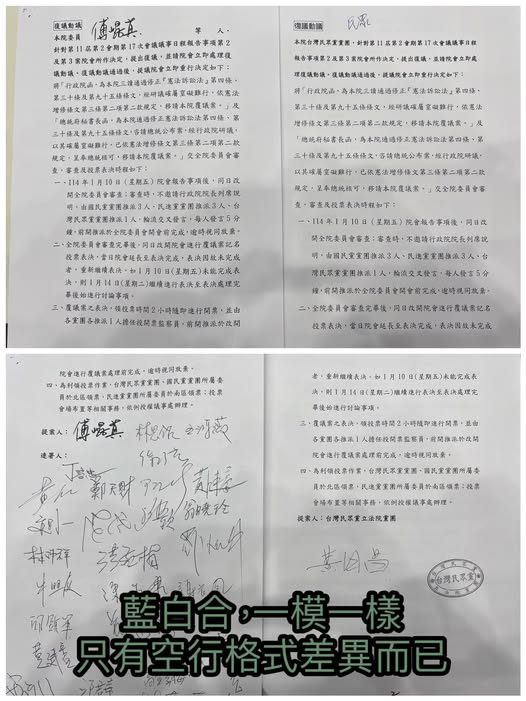 復議動議
本院委員 傅崐萁 等 人,
針對第11屆第2會期第17次會議議事日程報告事項第2
及第3案院會所作決定,提出復議,並請院會立即處理復
議動議,復議動議通過後,提議院會立即重行決定如下:
將「行政院函,為本院三讀通過修正『憲法訴訟法』第四條、
第三十條及第九十五條條文,經研議確屬窒礙難行,依憲法
增修條文第三條第二項第二款規定,移請本院覆議案。」及
「總統府秘書長函,為本院通過修正憲法訴訟法第四條、第
三十條及第九十五條條文,咨請總統公布案,經行政院研議,
以其確屬窒礙難行,已依憲法增修條文第三條第二項第二款
規定,呈奉總統核可,移請本院覆議案。」交全院委員會審
查,審查及覆議表決時程如下:
一、114年1月10日(星期五)院會報告事項後,同日改
開全院委員會審查;審查時,不邀請行政院院長列席說
明,由國民黨黨團推派3人、民進黨黨團推派3人、台
灣民眾黨黨團推派1人,輪流交叉發言,每人發言5分
鐘,前開推派於全院委員會開會前完成,逾時視同放棄。
二、全院委員會審查完畢後,同日改開院會進行覆議案記名
投票表決,當日院會延長至表決完成,表決因故未完成
者,重新繼續表決。如1月10日(星期五)未能完成表
決,則1月14日(星期二)繼續進行表決至表決處理完
畢後始進行討論事項。
三、覆議案之表決,領投票時間2小時隨即進行開票,並由
各黨團各推派1人擔任投開票監察員,前開推派於改開
院會進行覆議案處理前完成,逾時視同放棄。
四、為利領投票作業,台灣民眾黨黨團、國民黨黨團所屬委
員於北區領票,民進黨黨團所屬委員於南區領票;投票
會場布置等相關事務,依例授權議事處辦理。
提案人: 傅崐萁 林思銘 王鴻薇
連署人:
復議動議
民眾
本院台灣民眾黨黨團,針對第11屆第2會期第17次會議議事日程
報告事項第2及第3案院會所作決定,提出復議,並請院會立即處
理復議動議,復議動議通過後,提議院會立即重行決定如下:
將「行政院函,為本院三讀通過修正『憲法訴訟法』第四條、
第三十條及第九十五條條文,經研議確屬窒礙難行,依憲法
增修條文第三條第二項第二款規定,移請本院覆議案。」及
「總統府秘書長函,為本院通過修正憲法訴訟法第四條、第
三十條及第九十五條條文,咨請總統公布案,經行政院研議,
以其確屬窒礙難行,已依憲法增修條文第三條第二項第二款
規定,呈奉總統核可,移請本院覆議案。」交全院委員會審
查,審查及覆議表決時程如下:
一、114年1月10日(星期五)院會報告事項後,同日改
開全院委員會審查;審查時,不邀請行政院院長列席說
明,由國民黨黨團推派3人、民進黨黨團推派3人、台灣
民眾黨黨團推派1人,輪流交叉發言,每人發言5分
鐘,前開推派於全院委員會開會前完成,逾時視同放棄。
二、全院委員會審查完畢後,同日改開院會進行覆議案記名
投票表決,當日院會延長至表決完成,表決因故未完成
者,重新繼續表決。如1月10日(星期五)未能完成表
決,則1月14日(星期二)繼續進行表決至表決處理完
畢後始進行討論事項。
三、覆議案之表決,領投票時間2小時隨即進行開票,並由
各黨團各推派1人擔任投開票監察員,前開推派於改開
院會進行覆議案處理前完成,逾時視同放棄。
四、為利領投票作業,台灣民眾黨黨團、國民黨黨團所屬委
員於北區領票,民進黨黨團所屬委員於南區領票;投票
會場布置等相關事務,依例授權議事處辦理。
提案人:台灣民眾黨立法院黨團
黃國昌
台灣民眾黨
藍白合,一模一樣
只有空行格式差異而已